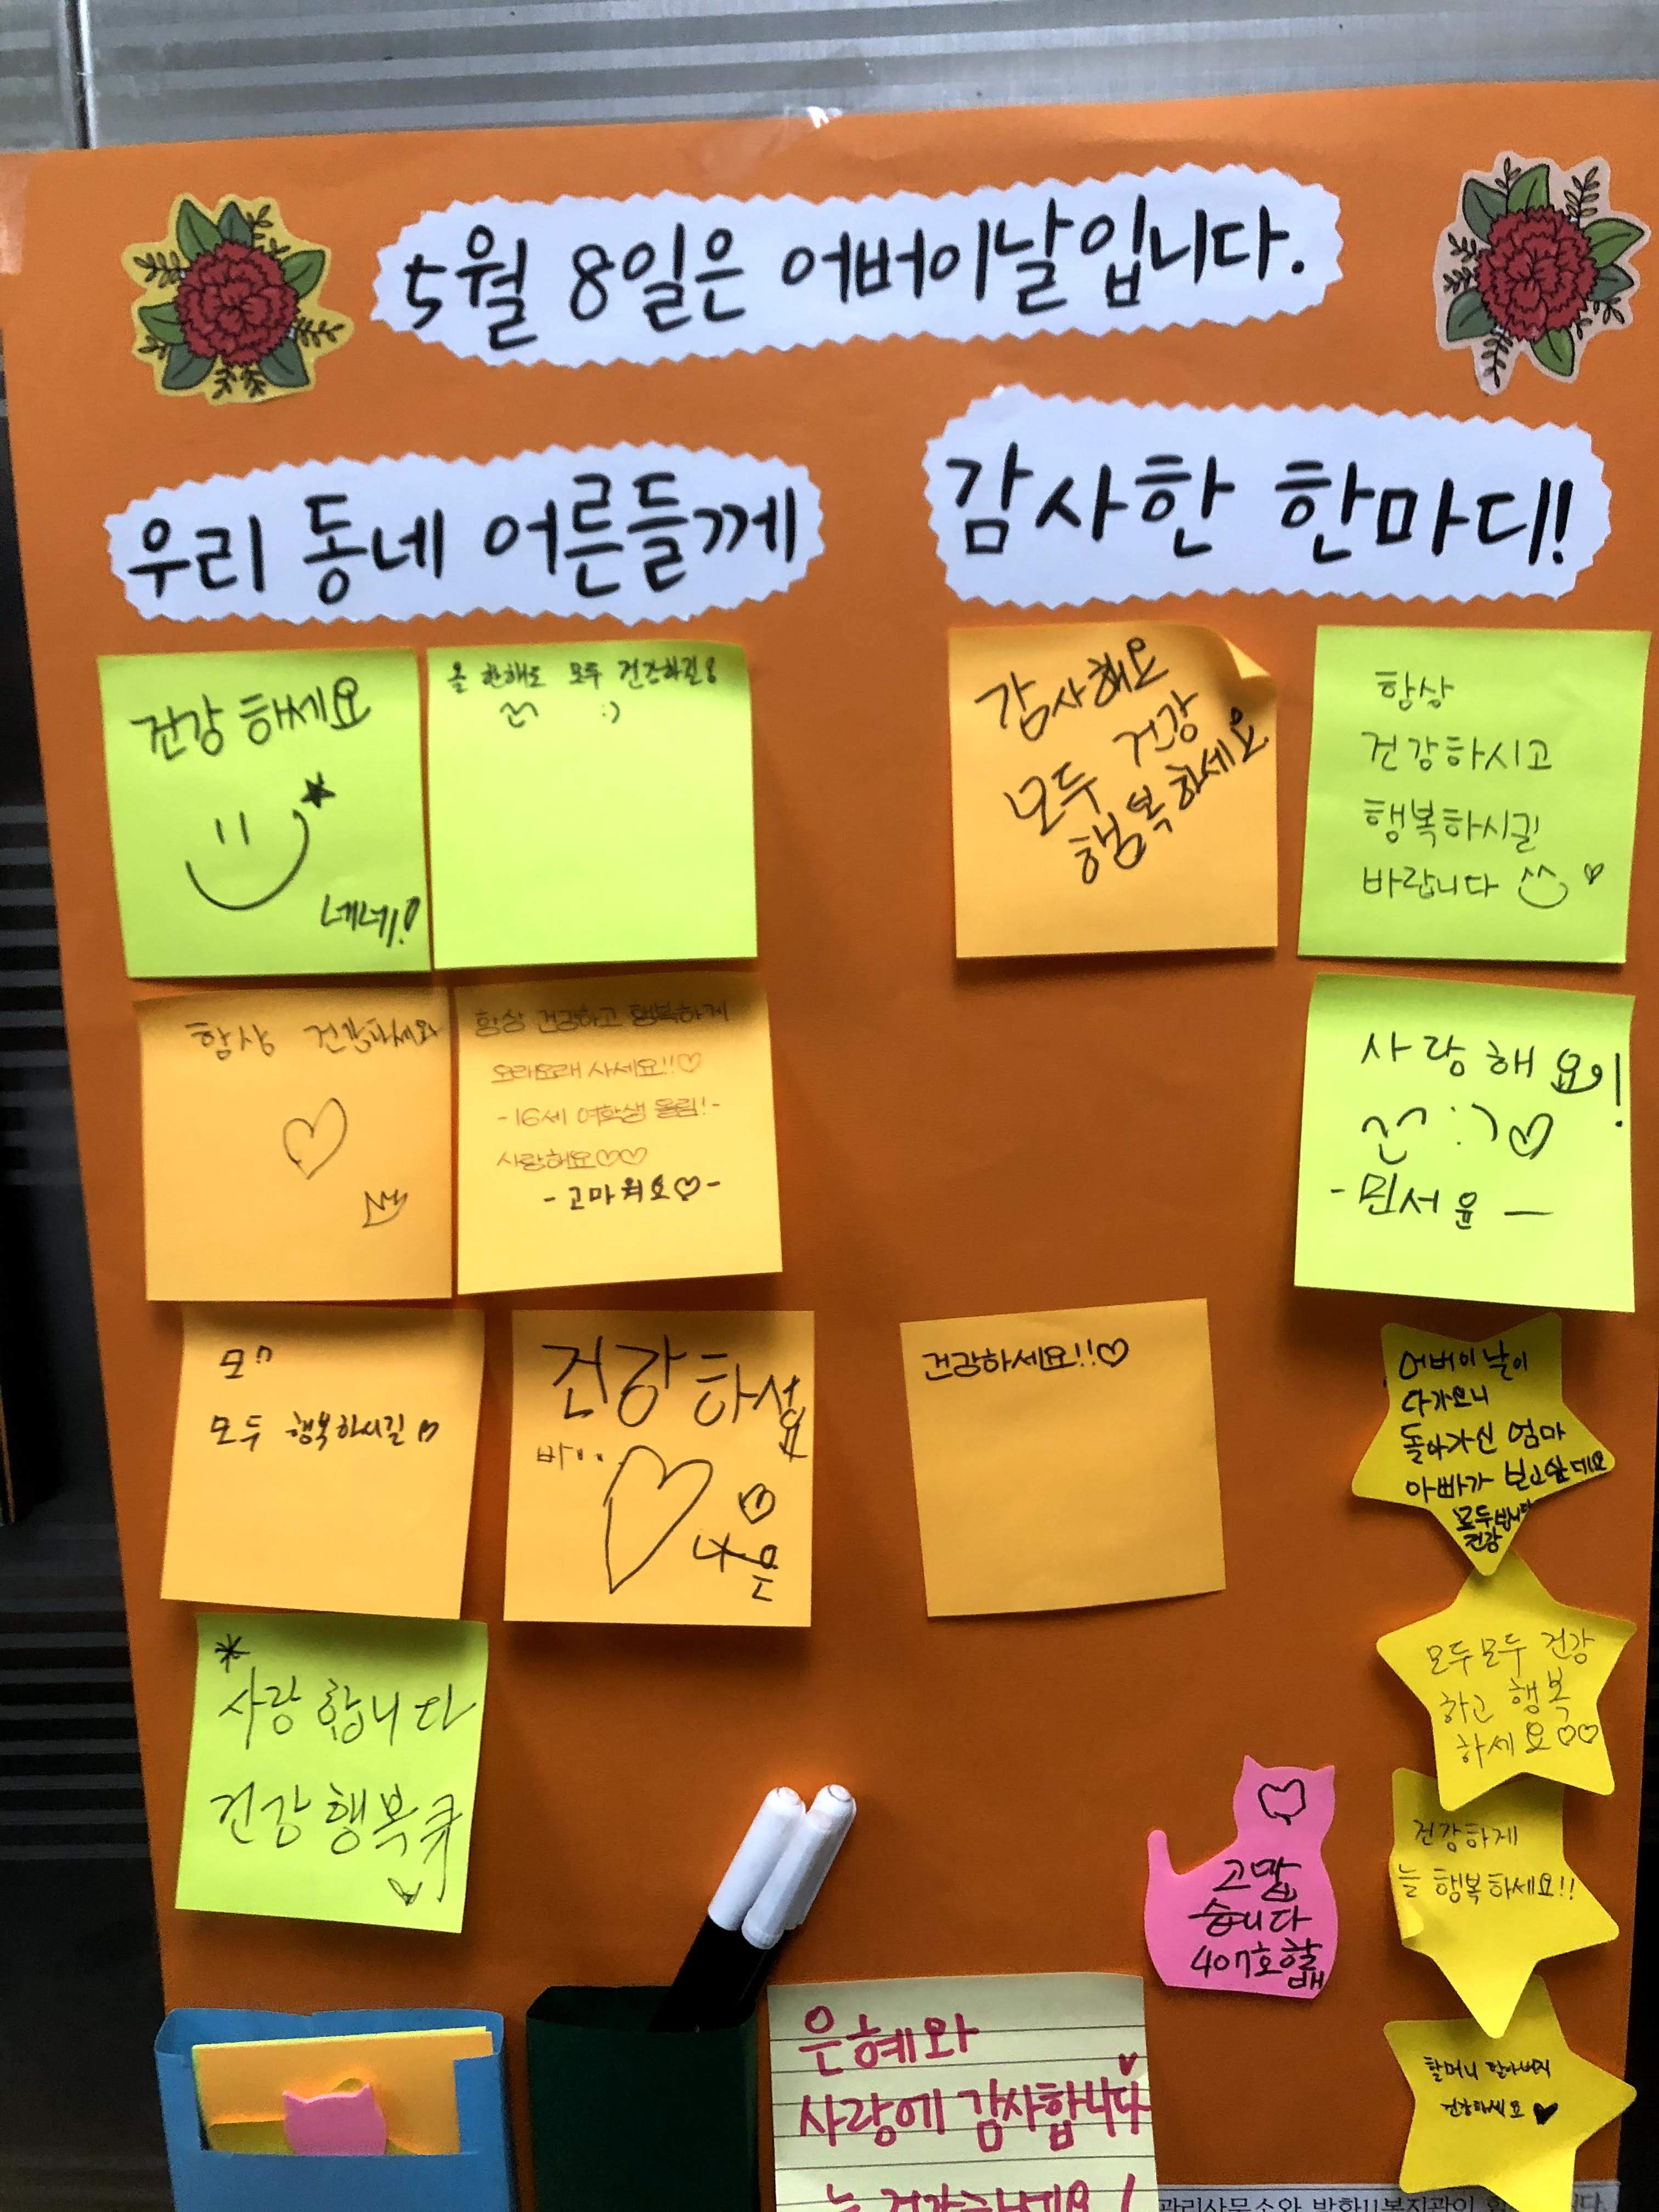 5월 8일은 어버이날입니다.
우리 동네 어른들께
감사한 한마디!
건강하세요
네네!
올 한해도 모두 건강하길!
:)
감사해요
모두 건강
행복하세요
항상
건강하시고
행복하시길
바랍니다
항상 건강하세요
항상 건강하고 행복하게
오래오래 사세요!!♡
-16세 여학생 올림!-
사랑해요♡♡
-고마워요♡-
사랑해요!
:)♡
-민서윤-
모
모두 행복하시길
건강하세요
건강하세요!!♡
어버이날이
다가오니
돌아가신 엄마
아빠가 보고싶네요
모두
건강
*사랑합니다
건강 행복
모두모두 건강
하고 행복
하세요♡♡
고맙
습니다
407호할배
건강하게
늘 행복하세요!!
할머니 할아버지
건강하세요♥
은혜와
사랑에 감사합니다
늘 건강하세요!